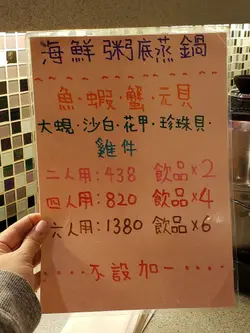 海鮮粥底蒸鍋
魚·蝦·蟹·元貝
大蜆·沙白·花甲·珍珠貝·
雞件
二人用:438 飲品×2
四人用:820 飲品×4
六人用:1380 飲品×6
····不設加一····